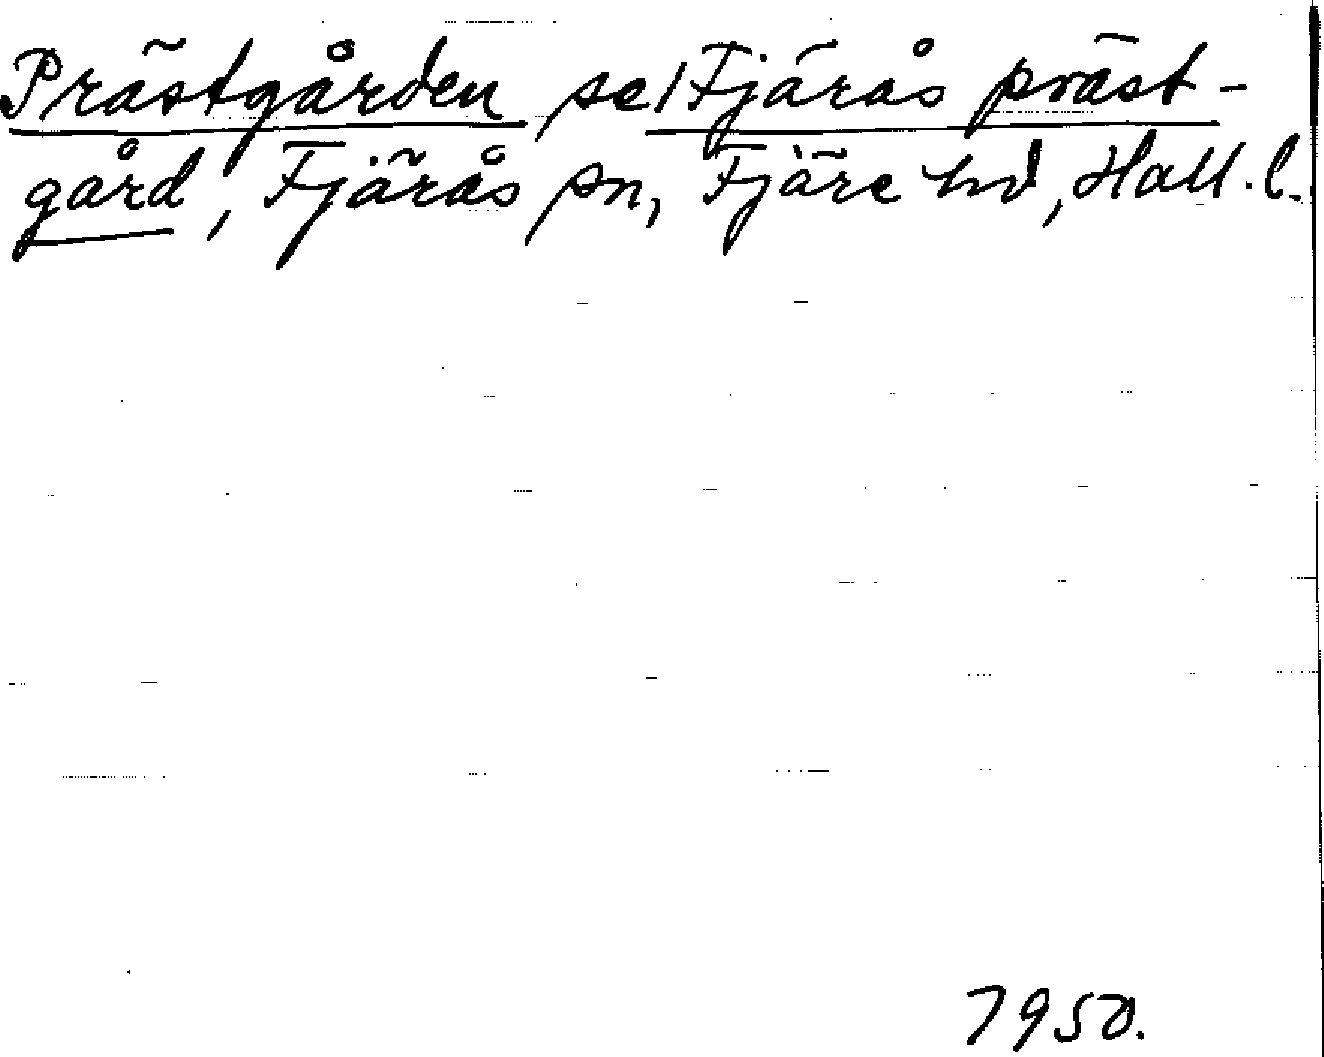 Prästgården se/Fjärås präst-
gård, Fjärås sn, Fjäre hd, Hall. l.
1950.